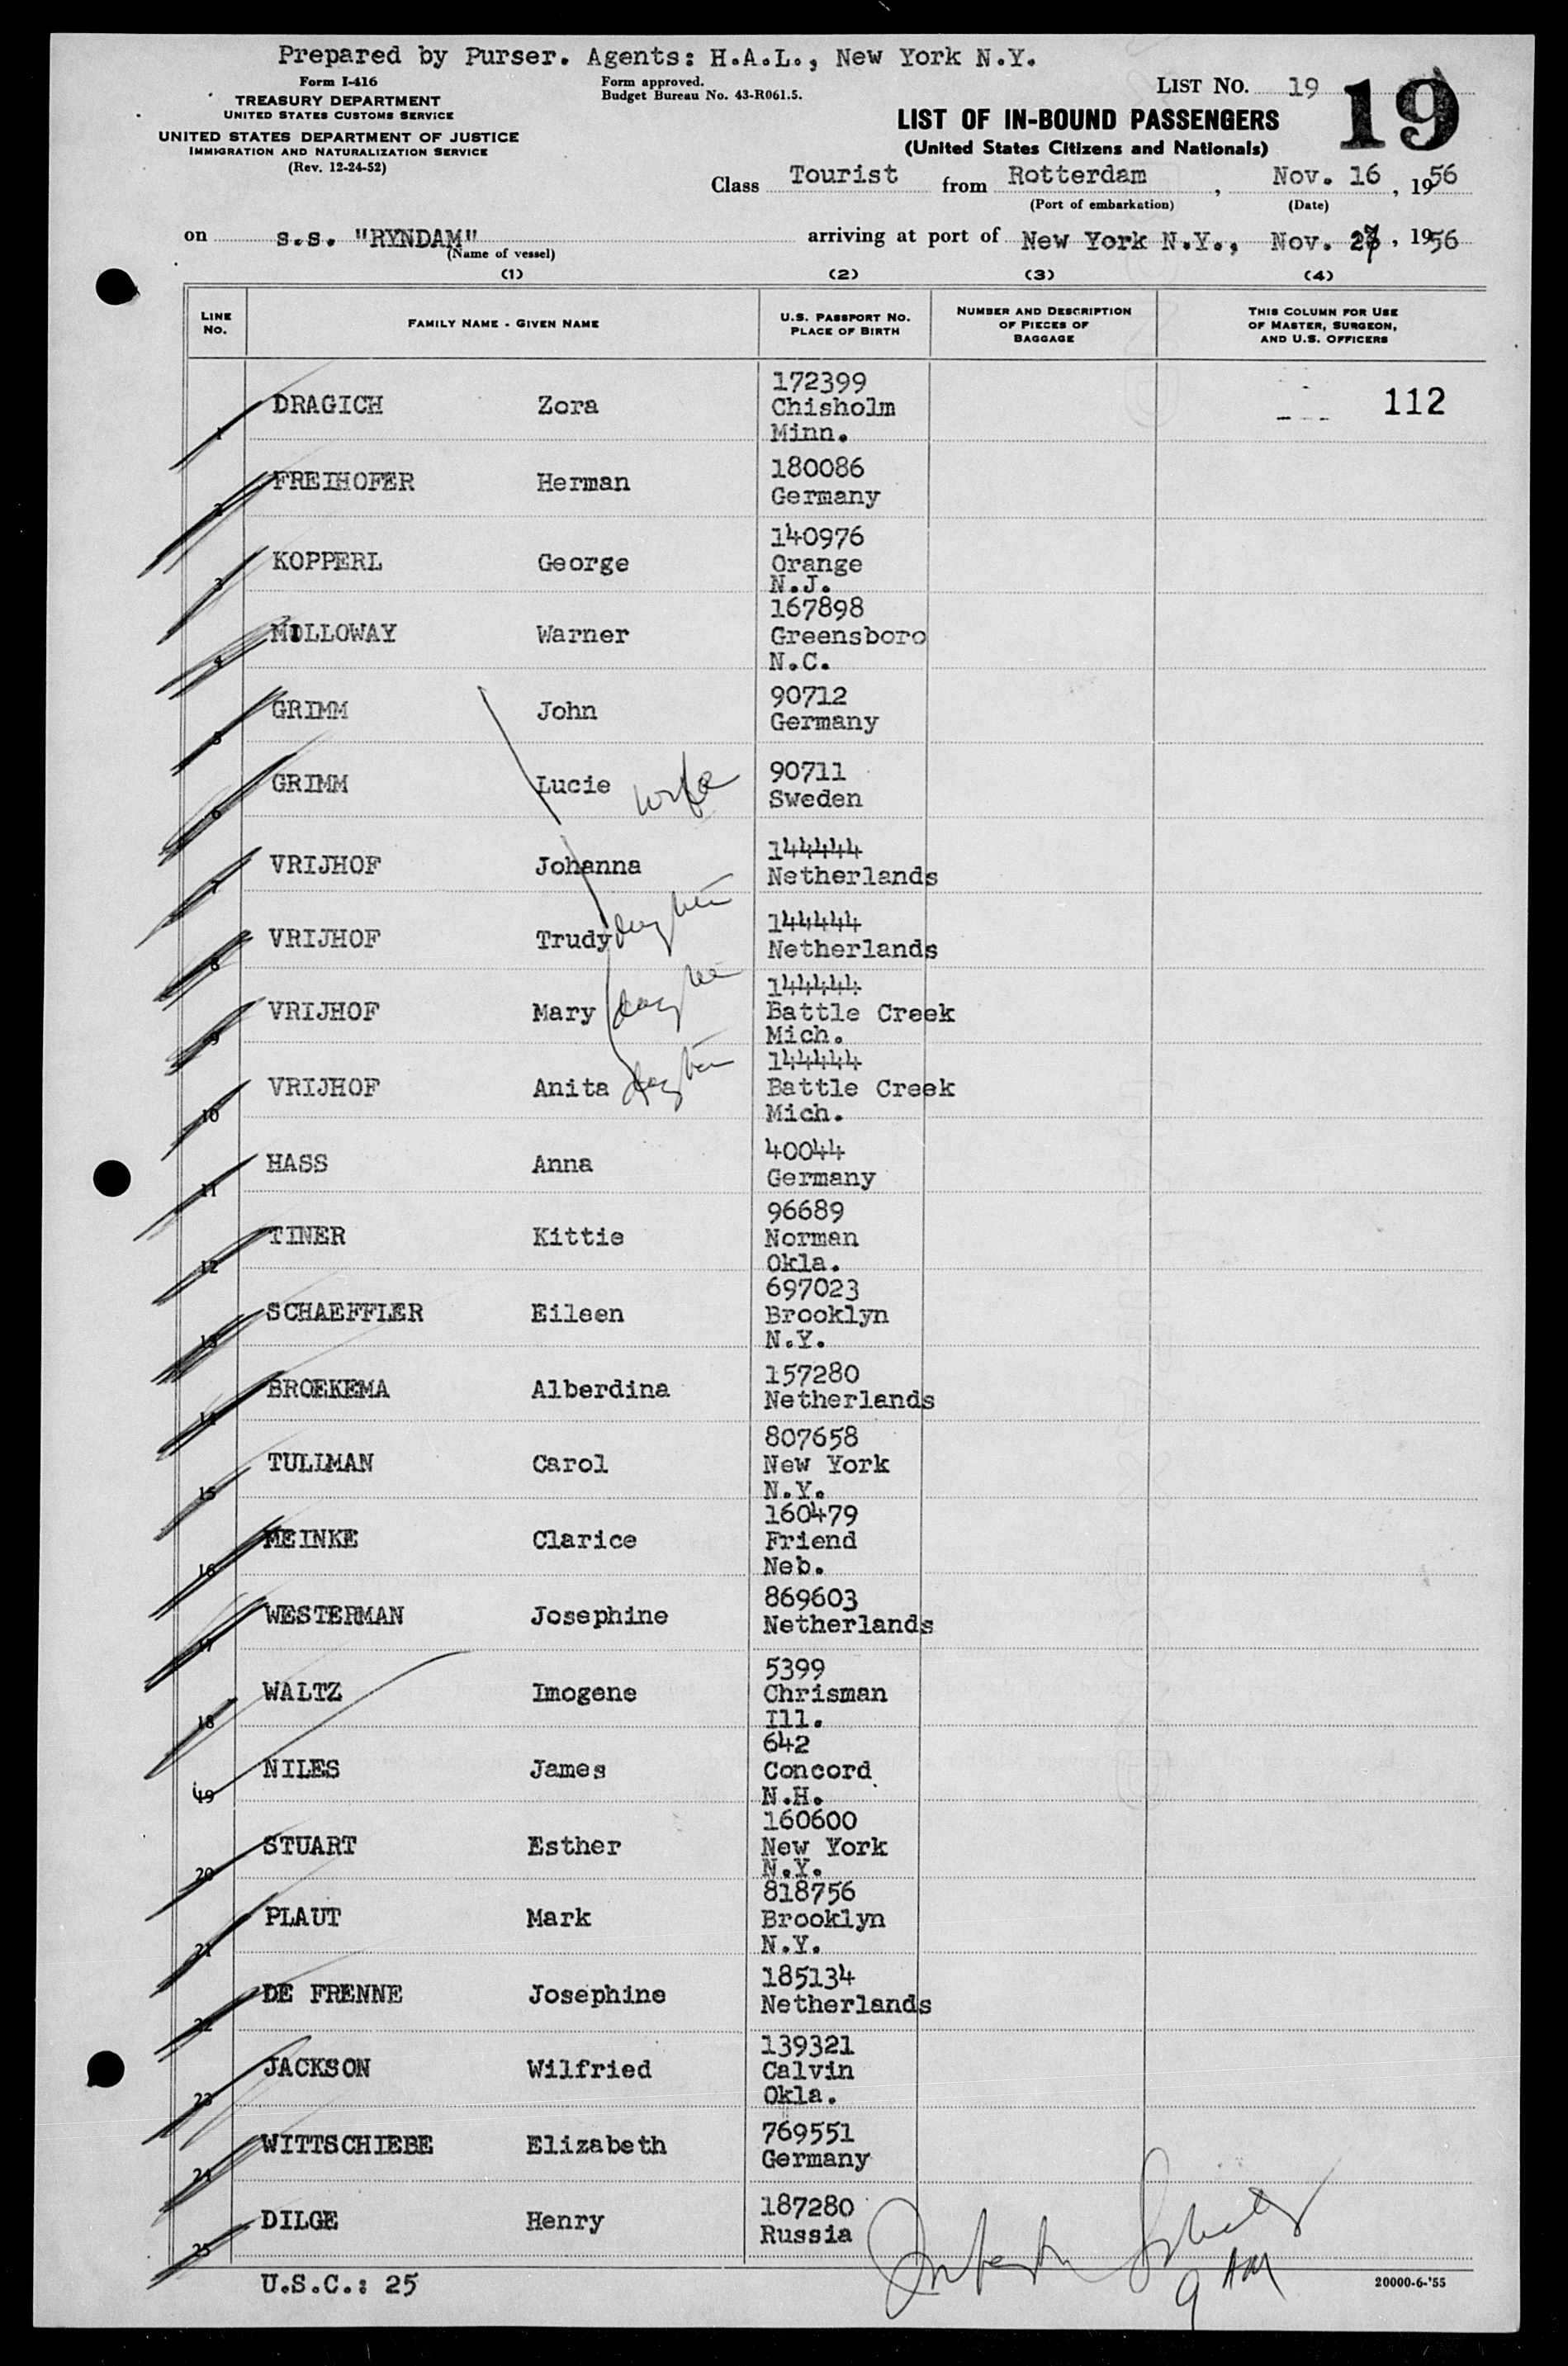 Prepared by Purser. Agents: H.A.L., New York N.Y.
Form I-416
TREASURY DEPARTMENT
UNITED STATES CUSTOMS SERVICE
UNITED STATES DEPARTMENT OF JUSTICE
IMMIGRATION AND NATURALIZATION SERVICE
(Rev. 12-24-52)
Form approved.
Budget Bureau No. 43-R061.5.
LIST NO. 19
19
LIST OF IN-BOUND PASSENGERS
(United States Citizens and Nationals)
Class Tourist from Rotterdam , Nov. 16 , 1956
(Port of embarkation) (Date)
on s.s. "RYNDAM" arriving at port of New York N.Y., Nov. 27 , 1956
(Name of vessel)
(1) (2) (3) (4)
LINE NO.
FAMILY NAME - GIVEN NAME
U.S. PASSPORT NO. PLACE OF BIRTH
NUMBER AND DESCRIPTION OF PIECES OF BAGGAGE
THIS COLUMN FOR USE OF MASTER, SURGEON, AND U.S. OFFICERS
172399
1 DRAGICH Zora Chisholm 112
Minn.
180086
2 FREIHOFER Herman Germany
140976
3 KOPPERL George Orange
N.J.
167898
4 MILLOWAY Warner Greensboro
N.C.
90712
5 GRIMM John Germany
90711
6 GRIMM Lucie wife Sweden
144444
7 VRIJHOF Johanna Netherlands
144444
8 VRIJHOF Trudy daughter Netherlands
144444
9 VRIJHOF Mary daughter Battle Creek
Mich.
144444
10 VRIJHOF Anita daughter Battle Creek
Mich.
40044
11 HASS Anna Germany
96689
12 TINER Kittie Norman
Okla.
697023
13 SCHAEFFLER Eileen Brooklyn
N.Y.
157280
14 BROEKEMA Alberdina Netherlands
807658
15 TULLMAN Carol New York
N.Y.
160479
16 MEINKE Clarice Friend
Neb.
869603
17 WESTERMAN Josephine Netherlands
5399
18 WALTZ Imogene Chrisman
Ill.
642
19 NILES James Concord
N.H.
160600
20 STUART Esther New York
N.Y.
818756
21 PLAUT Mark Brooklyn
N.Y.
185134
22 DE FRENNE Josephine Netherlands
139321
23 JACKSON Wilfried Calvin
Okla.
769551
24 WITTSCHIEBE Elizabeth Germany
187280
25 DILGE Henry Russia
9 AM
U.S.C.: 25
20000-6-'55